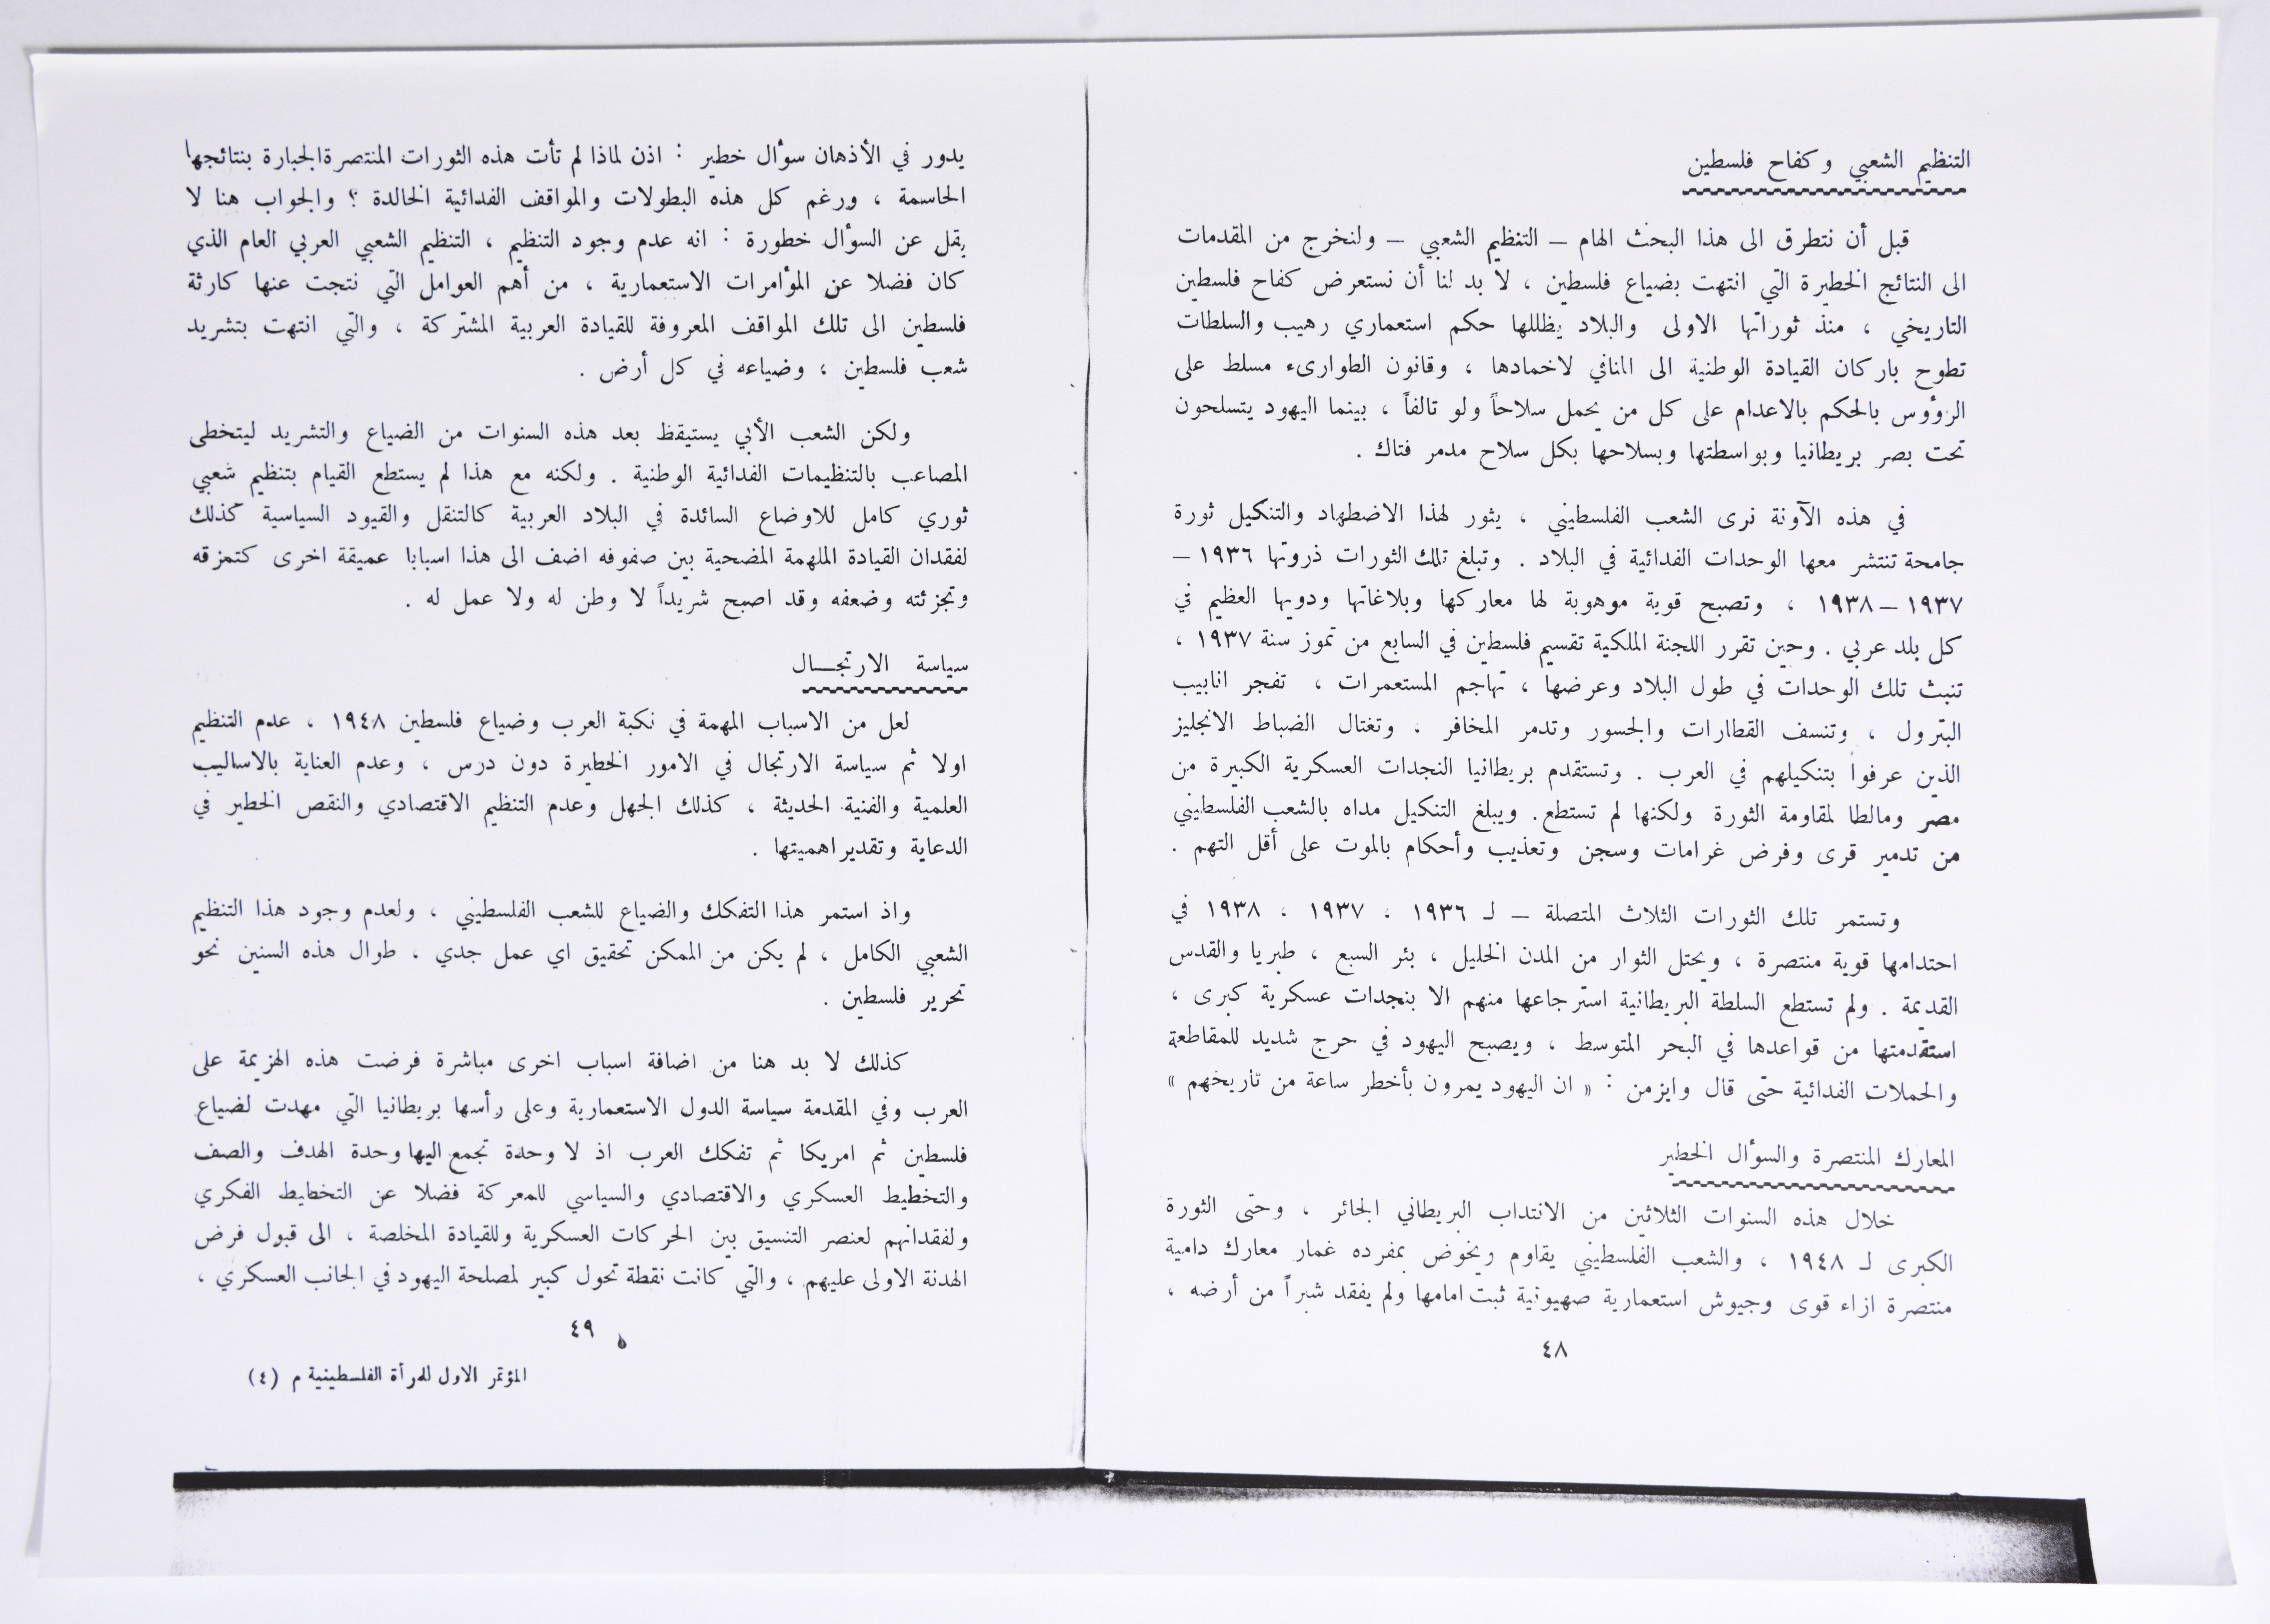 التنظيم الشعبي وكفاح فلسطين
قبل أن نتطرق الى هذا البحث الهام – التنظيم الشعبي – ولنخرج من المقدمات
الى النتائج الخطيرة التي انتهت بضياع فلسطين ، لا بد لنا أن نستعرض كفاح فلسطين
التاريخي ، منذ ثوراتها الاولى والبلاد يظللها حكم استعماري رهيب والسلطات
تطوح باركان القيادة الوطنية الى المنافي لاخمادها ، وقانون الطوارىء مسلط على
الرؤوس بالحكم بالاعدام على كل من يحمل سلاحاً ولو تالفاً ، بينما اليهود يتسلحون
تحت بصر بريطانيا وبواسطتها وبسلاحها بكل سلاح مدمر فتاك .
في هذه الآونة نرى الشعب الفلسطيني ، يثور لهذا الاضطهاد والتنكيل ثورة
جامحة تنتشر معها الوحدات الفدائية في البلاد . وتبلغ تلك الثورات ذروتها ١٩٣٦ –
١٩٣٧ – ١٩٣٨ ، وتصبح قوية موهوبة لها معاركها وبلاغاتها ودويها العظيم في
كل بلد عربي . وحين تقرر اللجنة الملكية تقسيم فلسطين في السابع من تموز سنة ١٩٣٧ ،
تنبث تلك الوحدات في طول البلاد وعرضها ، تهاجم المستعمرات ، تفجر انابيب
البترول ، وتنسف القطارات والجسور وتدمر المخافر . وتغتال الضباط الانجليز
الذين عرفوا بتنكيلهم في العرب . وتستقدم بريطانيا النجدات العسكرية الكبيرة من
مصر ومالطا لمقاومة الثورة ولكنها لم تستطع . ويبلغ التنكيل مداه بالشعب الفلسطيني
من تدمير قرى وفرض غرامات وسجن وتعذيب وأحكام بالموت على أقل التهم .
وتستمر تلك الثورات الثلاث المتصلة – لـ ١٩٣٦ ، ١٩٣٧ ، ١٩٣٨ في
احتدامها قوية منتصرة ، ويحتل الثوار من المدن الخليل ، بئر السبع ، طبريا والقدس
القديمة . ولم تستطع السلطة البريطانية استرجاعها منهم الا بنجدات عسكرية كبرى ،
استقدمتها من قواعدها في البحر المتوسط ، ويصبح اليهود في حرج شديد للمقاطعة
والحملات الفدائية حتى قال وايزمن : « ان اليهود يمرون بأخطر ساعة من تاريخهم »
المعارك المنتصرة والسؤال الخطير
خلال هذه السنوات الثلاثين من الانتداب البريطاني الجائر ، وحتى الثورة
الكبرى لـ ١٩٤٨ ، والشعب الفلسطيني يقاوم ويخوض بمفرده غمار معارك دامية
منتصرة ازاء قوى وجيوش استعمارية صهيونية ثبت امامها ولم يفقد شبراً من أرضه ،
٤٨
يدور في الأذهان سؤال خطير : اذن لماذا لم تأت هذه الثورات المنتصرة الجبارة بنتائجها
الحاسمة ، ورغم كل هذه البطولات والمواقف الفدائية الخالدة ؟ والجواب هنا لا
يقل عن السؤال خطورة : انه عدم وجود التنظيم ، التنظيم الشعبي العربي العام الذي
كان فضلا عن المؤامرات الاستعمارية ، من أهم العوامل التي نتجت عنها كارثة
فلسطين الى تلك المواقف المعروفة للقيادة العربية المشتركة ، والتي انتهت بتشريد
شعب فلسطين ، وضياعه في كل أرض .
ولكن الشعب الأبي يستيقظ بعد هذه السنوات من الضياع والتشريد ليتخطى
المصاعب بالتنظيمات الفدائية الوطنية . ولكنه مع هذا لم يستطع القيام بتنظيم شعبي
ثوري كامل للاوضاع السائدة في البلاد العربية كالتنقل والقيود السياسية كذلك
لفقدان القيادة الملهمة المضحية بين صفوفه اضف الى هذا اسبابا عميقة اخرى كتمزقه
وتجزئته وضعفه وقد اصبح شريداً لا وطن له ولا عمل له .
سياسة الارتجـــال
لعل من الاسباب المهمة في نكبة العرب وضياع فلسطين ١٩٤٨ ، عدم التنظيم
اولا ثم سياسة الارتجال في الامور الخطيرة دون درس ، وعدم العناية بالاساليب
العلمية والفنية الحديثة ، كذلك الجهل وعدم التنظيم الاقتصادي والنقص الخطير في
الدعاية وتقدير اهميتها .
واذ استمر هذا التفكك والضياع للشعب الفلسطيني ، ولعدم وجود هذا التنظيم
الشعبي الكامل ، لم يكن من الممكن تحقيق اي عمل جدي ، طوال هذه السنين نحو
تحرير فلسطين .
كذلك لا بد هنا من اضافة اسباب اخرى مباشرة فرضت هذه الهزيمة على
العرب وفي المقدمة سياسة الدول الاستعمارية وعلى رأسها بريطانيا التي مهدت لضياع
فلسطين ثم امريكا ثم تفكك العرب اذ لا وحدة تجمع اليها وحدة الهدف والصف
والتخطيط العسكري والاقتصادي والسياسي للمعركة فضلا عن التخطيط الفكري
ولفقدانهم لعنصر التنسيق بين الحركات العسكرية وللقيادة المخلصة ، الى قبول فرض
الهدنة الاولى عليهم ، والتي كانت نقطة تحول كبير لمصلحة اليهود في الجانب العسكري ،
٤٩
المؤتمر الاول للمرأة الفلسطينية م (٤)